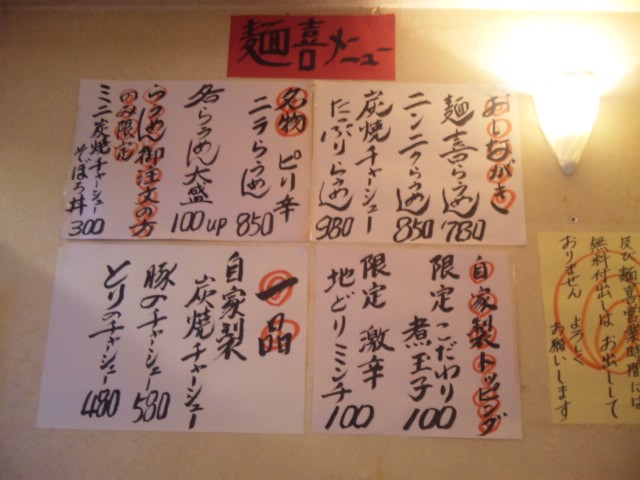 麺喜メニュー
おしながき
麺喜らうめん 780
ニンニクらうめん 850
炭焼チャーシュー
たっぷりらうめん 980
名物 ピリ辛
ニラらうめん 850
各らうめん大盛 100up
らうめん御注文の方
のみ限定
ミニ炭焼チャーシュー
そぼろ丼 300
自家製トッピング
限定 こだわり
煮玉子 100
限定 激辛
地どりミンチ 100
一品
自家製
炭焼チャーシュー
豚のチャーシュー 580
とりのチャーシュー 480
及び麺喜営業時間には
無料付出しは お出しして
おりません よろしく
お願いします